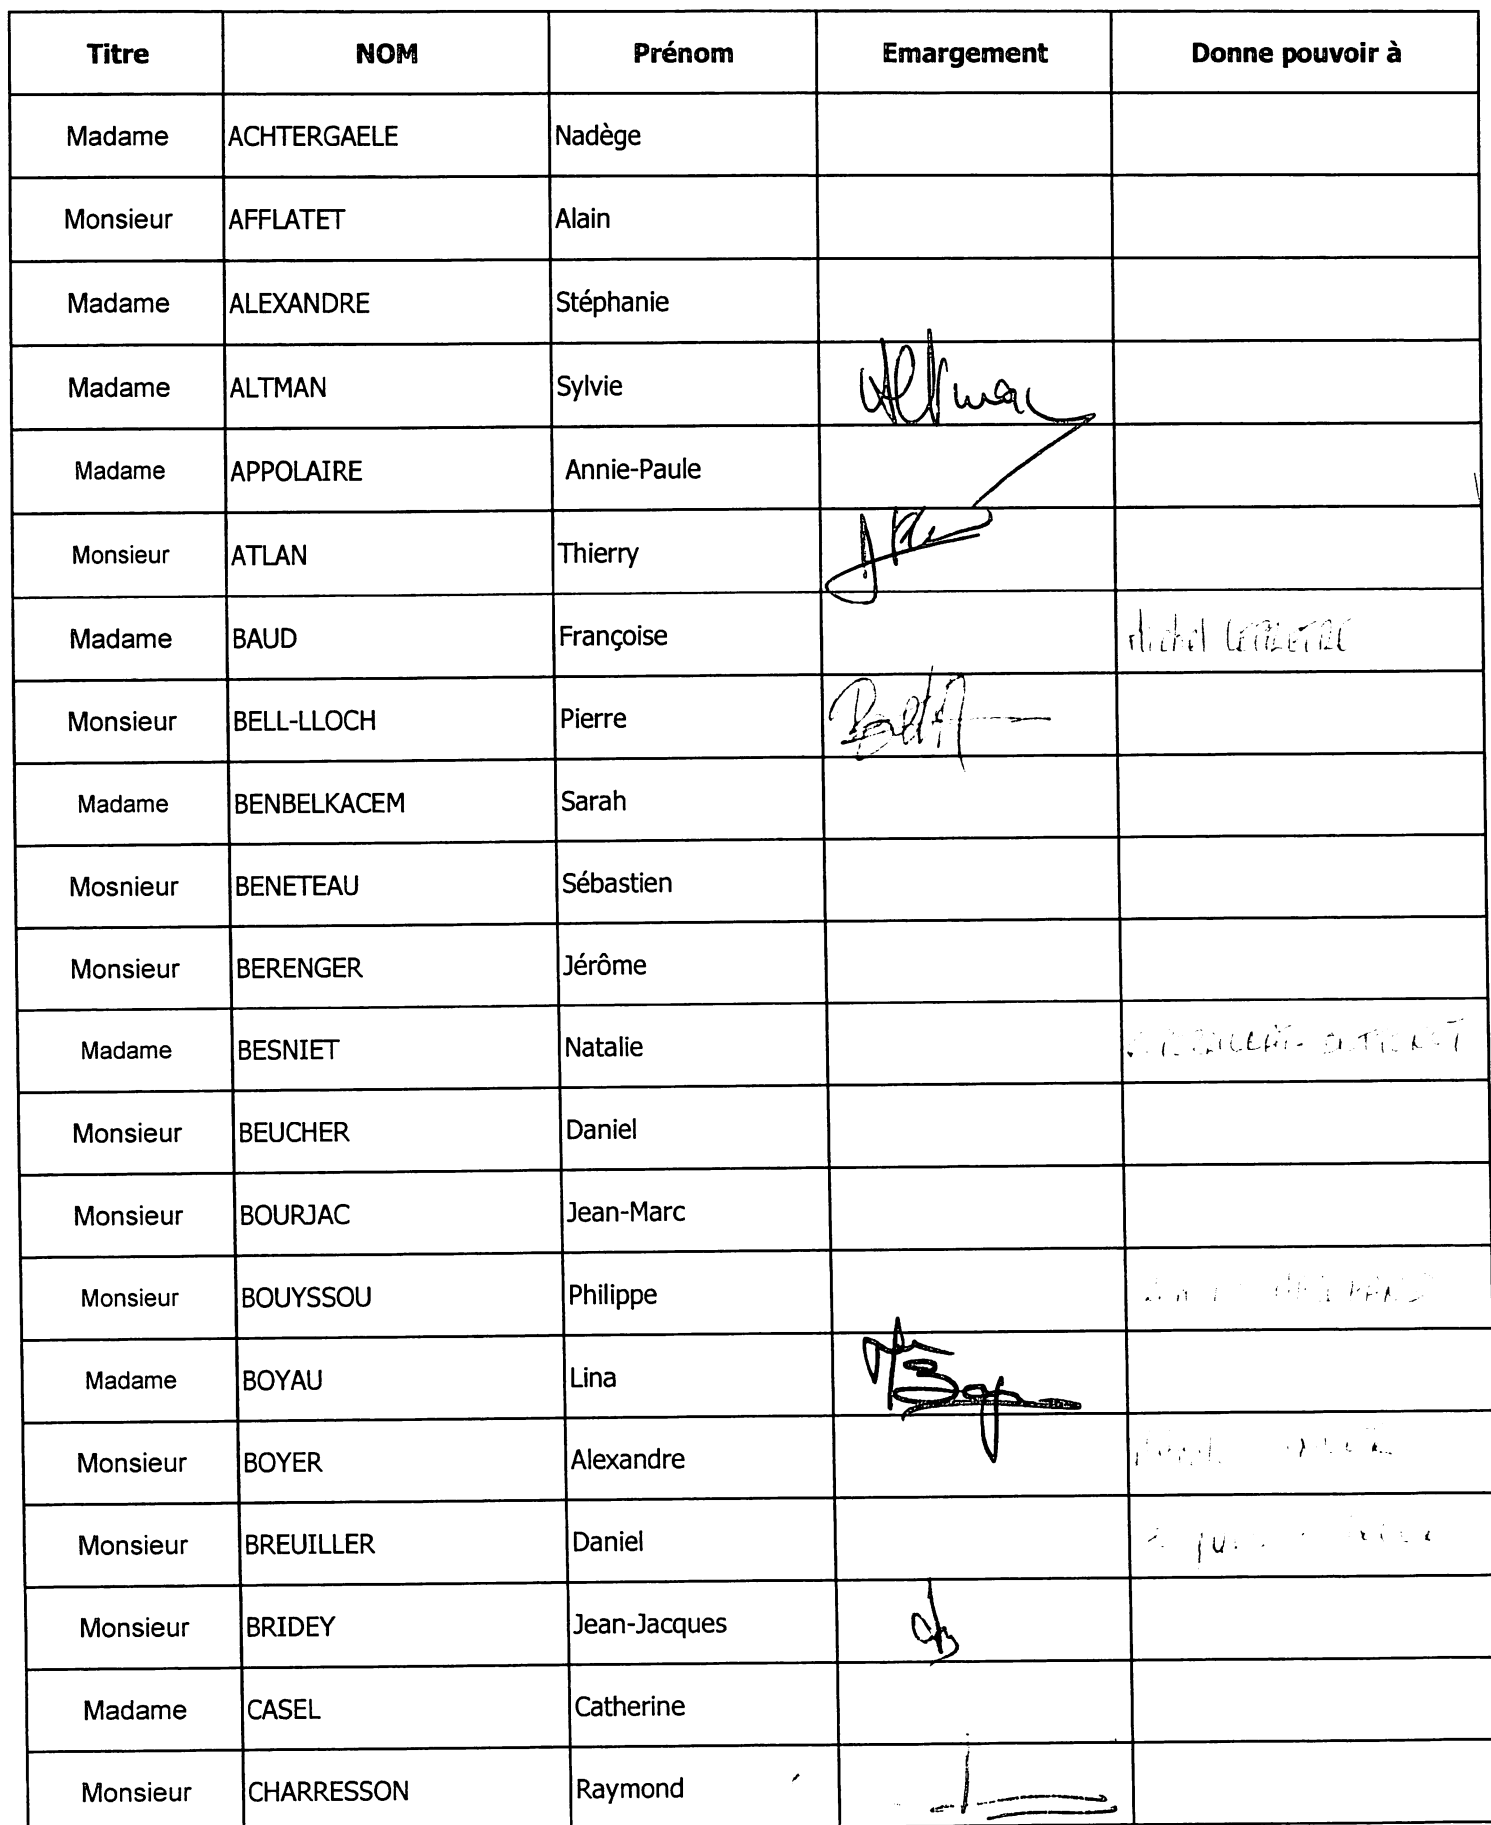 Titre NOM Prénom Emargement Donne pouvoir à
Madame ACHTERGAELE Nadège
Monsieur AFFLATET Alain
Madame ALEXANDRE Stéphanie
Madame ALTMAN Sylvie
Madame APPOLAIRE Annie-Paule
Monsieur ATLAN Thierry
Madame BAUD Françoise Michel
Monsieur BELL-LLOCH Pierre
Madame BENBELKACEM Sarah
Mosnieur BENETEAU Sébastien
Monsieur BERENGER Jérôme
Madame BESNIET Natalie
Monsieur BEUCHER Daniel
Monsieur BOURJAC Jean-Marc
Monsieur BOUYSSOU Philippe
Madame BOYAU Lina
Monsieur BOYER Alexandre
Monsieur BREUILLER Daniel
Monsieur BRIDEY Jean-Jacques
Madame CASEL Catherine
Monsieur CHARRESSON Raymond